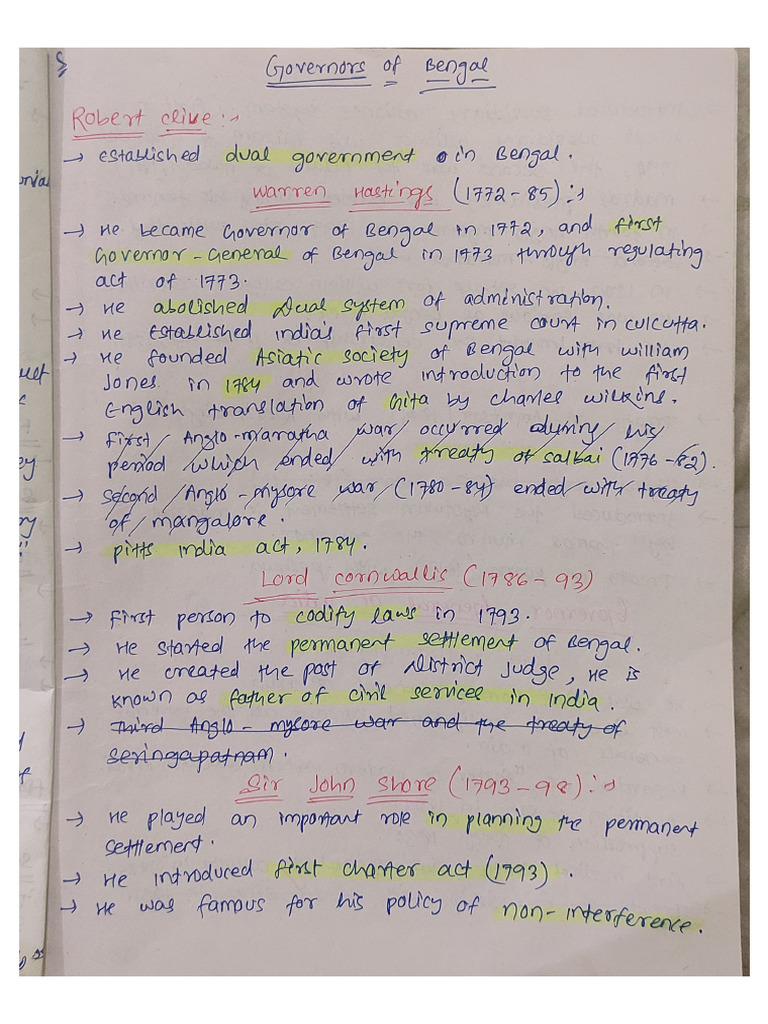 Governors of Bengal
Robert Clive :→
→ established dual government in Bengal.
Warren Hastings (1772-85) :→
→ He became Governor of Bengal in 1772, and first
Governor-General of Bengal in 1773 through regulating
act of 1773.
→ He abolished Dual system of administration.
→ He Established India's first supreme court in culcutta.
→ He founded Asiatic society of Bengal with william
Jones in 1784 and wrote introduction to the first
English translation of Gita by charles wilkins.
→ first Anglo-maratha war occurred during his
period which ended with treaty of salbai (1776-82).
→ second Anglo-mysore war (1780-84) ended with treaty
of mangalore.
→ pitts india act, 1784.
Lord cornwallis (1786-93)
→ First person to codify laws in 1793.
→ He started the permanent settlement of Bengal.
→ He created the post of District Judge, He is
known as father of civil services in India.
→ Third Anglo-mysore war and the treaty of
seringapatnam.
Sir John Shore (1793-98) :→
→ He played an important role in planning the permanent
settlement.
→ He introduced first charter act (1793).
→ He was famous for his policy of non-interference.